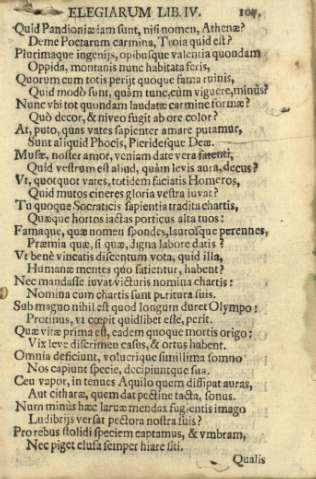 ELEGIARUM LIB. IV. 107.
Quid Pandioniæ iam sunt, nisi nomen, Athenæ?
Deme Poetarum carmina, Troia quid est?
Plurimaque ingenijs, opibusque valentia quondam
Oppida, montanis nunc habitata feris,
Quorum cum totis perijt quoque fama ruinis,
Quid modò sunt, quàm tunc, cùm viguere, minus?
Nunc vbi tot quondam laudatæ carmine formæ?
Quò decor, & niveo fugit ab ore color?
At, puto, quas vates sapienter amare putamur,
Sunt aliquid Phocis, Pieridesque Deæ.
Musæ, noster amor, veniam date vera fatenti,
Quid vestrum est aliud, quàm levis aura, decus?
Vt, quotquot vates, totidem faciatis Homeros,
Quid mutos cineres gloria vestra iuvat?
Tu quoque Socraticis sapientia tradita chartis,
Quæque hortos iactas porticus alta tuos:
Famaque, quæ nomen spondes, laurosque perennes,
Præmia quæ, si quæ, digna labore datis?
Vt benè vincatis discentum vota, quid illa,
Humanæ mentes quo satientur, habent?
Nec mandasse iuvat victuris nomina chartis:
Nomina cum chartis sunt peritura suis.
Sub magno nihil est quod longum duret Olympo:
Protinus, vt cœpit quidlibet esse, perit.
Quæ vitæ prima est, eadem quoque mortis origo:
Vix leve discrimen casus, & ortus habent.
Omnia deficiunt, volucrique simillima somno
Nos capiunt specie, decipiuntque sua.
Ceu vapor, in tenues Aquilo quem dissipat auras,
Aut citharæ, quem dat pectine tacta, sonus.
Num minùs hæc laruæ mendax fugientis imago
Ludibrijs versat pectora nostra suis?
Pro rebus stolidi speciem captamus, & vmbram,
Nec piget elusa semper hiare siti.
Qualis